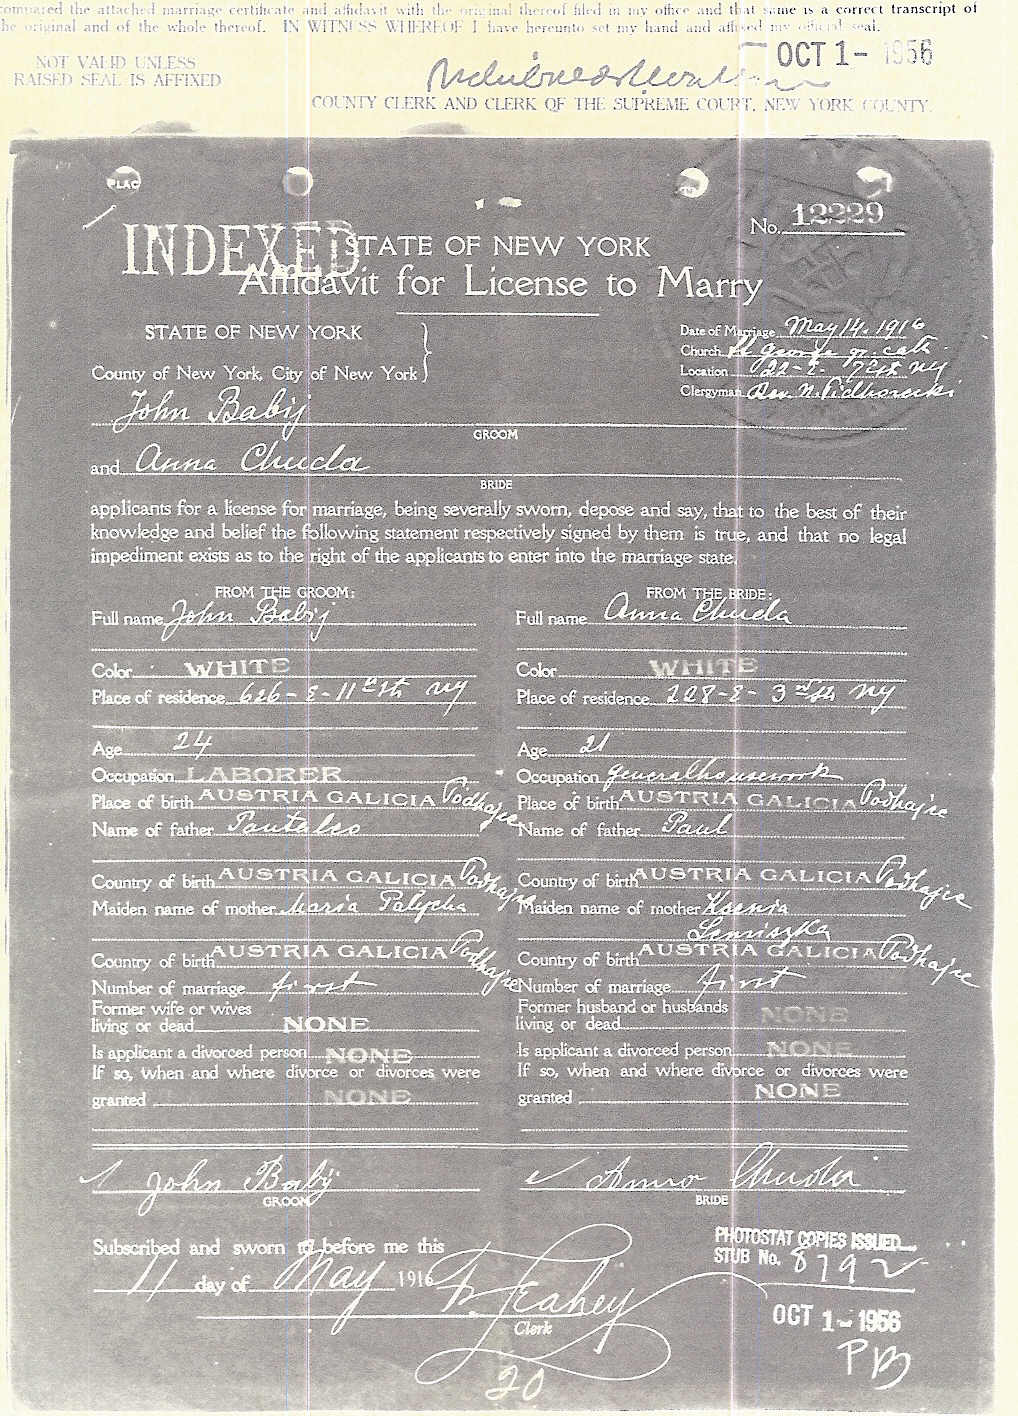 compared the attached marriage certificate and affidavit with the original thereof filed in my office and that same is a correct transcript of
the original and of the whole thereof. IN WITNESS WHEREOF I have hereunto set my hand and affixed my official seal.
NOT VALID UNLESS
RAISED SEAL IS AFFIXED
OCT 1 - 1956
COUNTY CLERK AND CLERK OF THE SUPREME COURT, NEW YORK COUNTY.
No. 12229
INDEXED
STATE OF NEW YORK
Affidavit for License to Marry
STATE OF NEW YORK
County of New York, City of New York
Date of Marriage May 14. 1916
Church St George gr. cath.
Location 22-E- 7th NY
Clergyman Rev. N. Pidhorecki
John Babij
GROOM
and Anna Chuda
BRIDE
applicants for a license for marriage, being severally sworn, depose and say, that to the best of their
knowledge and belief the following statement respectively signed by them is true, and that no legal
impediment exists as to the right of the applicants to enter into the marriage state.
FROM THE GROOM:
Full name John Babij
Color WHITE
Place of residence 626-E-11th st NY
Age 24
Occupation LABORER
Place of birth AUSTRIA GALICIA Podhajce
Name of father Pantaleo
Country of birth AUSTRIA GALICIA Podhajce
Maiden name of mother Maria Palycha
Country of birth AUSTRIA GALICIA Podhajce
Number of marriage first
Former wife or wives
living or dead NONE
Is applicant a divorced person NONE
If so, when and where divorce or divorces were
granted NONE
FROM THE BRIDE:
Full name Anna Chuda
Color WHITE
Place of residence 228-E- 3rd st NY
Age 21
Occupation generalhousework
Place of birth AUSTRIA GALICIA Podhajce
Name of father Paul
Country of birth AUSTRIA GALICIA Podhajce
Maiden name of mother Ksenia
Lemiszka
Country of birth AUSTRIA GALICIA Podhajce
Number of marriage first
Former husband or husbands
living or dead NONE
Is applicant a divorced person NONE
If so, when and where divorce or divorces were
granted NONE
John Babij
GROOM
Anna Chuda
BRIDE
Subscribed and sworn to before me this
11 day of May 1916
Leahey
Clerk
20
PHOTOSTAT COPIES ISSUED
STUB No. 8792
OCT 1 - 1956
PB